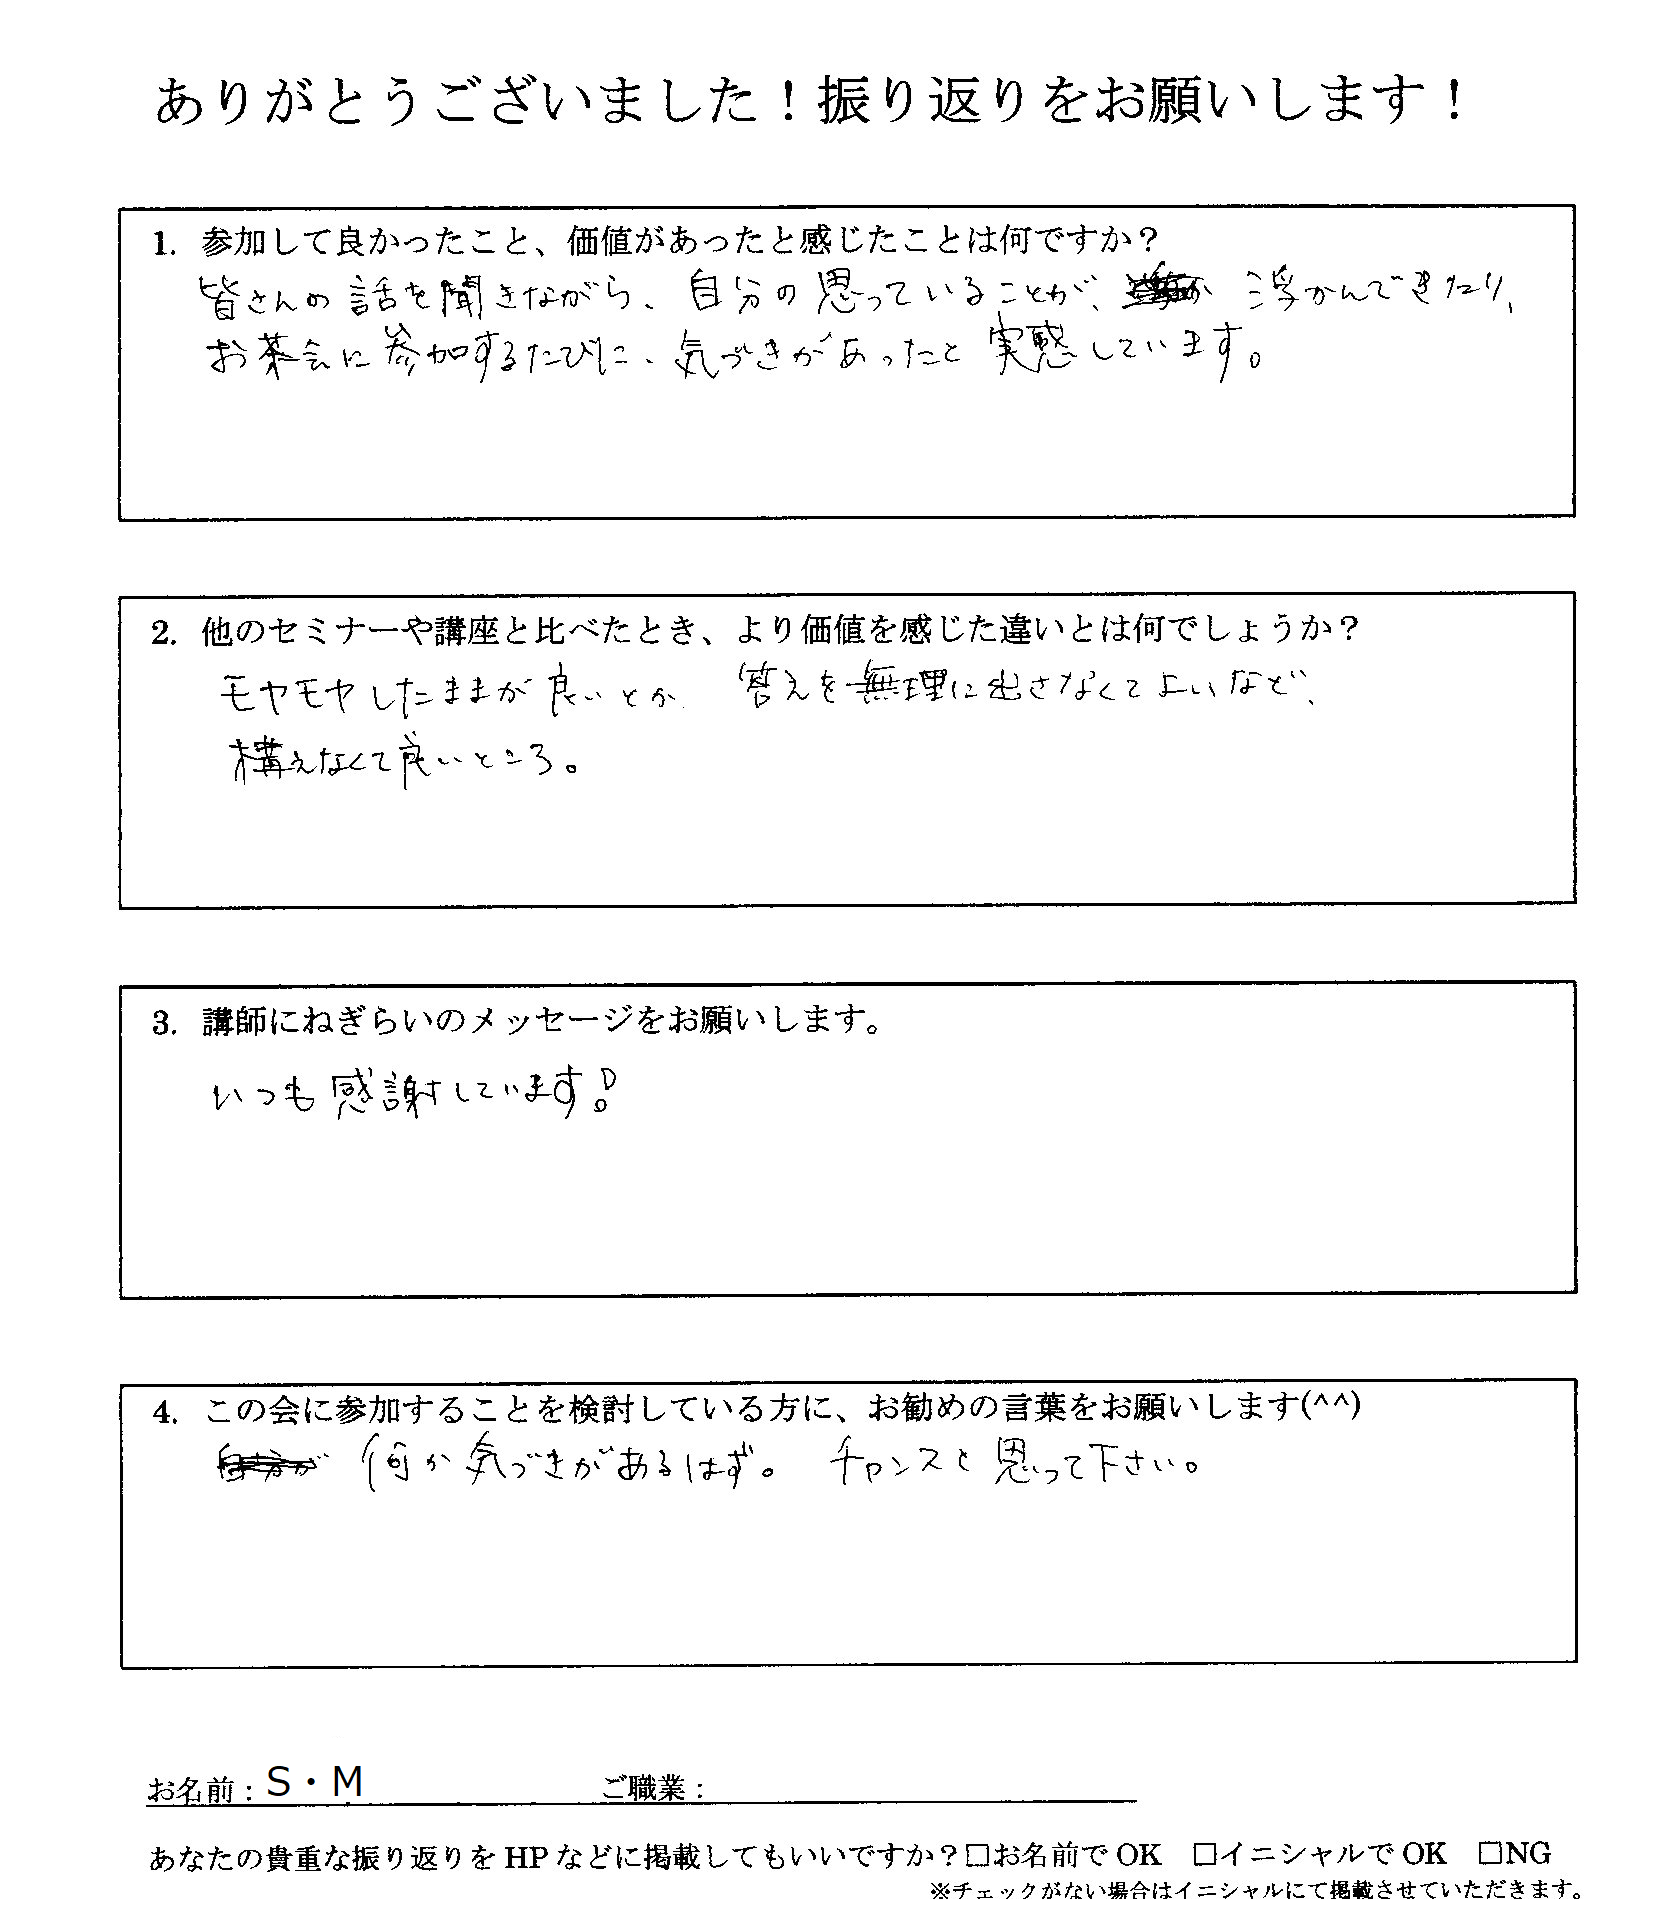 ありがとうございました！振り返りをお願いします！
1. 参加して良かったこと、価値があったと感じたことは何ですか？
皆さんの話を聞きながら、自分の思っていることが、浮かんできたり、
お茶会に参加するたびに、気づきがあったと実感しています。
2. 他のセミナーや講座と比べたとき、より価値を感じた違いとは何でしょうか？
モヤモヤしたままが良いとか 答えを無理に出さなくてよいなど、
構えなくて良いところ。
3. 講師にねぎらいのメッセージをお願いします。
いつも感謝しています!
4. この会に参加することを検討している方に、お勧めの言葉をお願いします(^^)
何か気づきがあるはず。 チャンスと思って下さい。
お名前：S・M ご職業：
あなたの貴重な振り返りを HP などに掲載してもいいですか？□お名前で OK □イニシャルで OK □NG
※チェックがない場合はイニシャルにて掲載させていただきます。